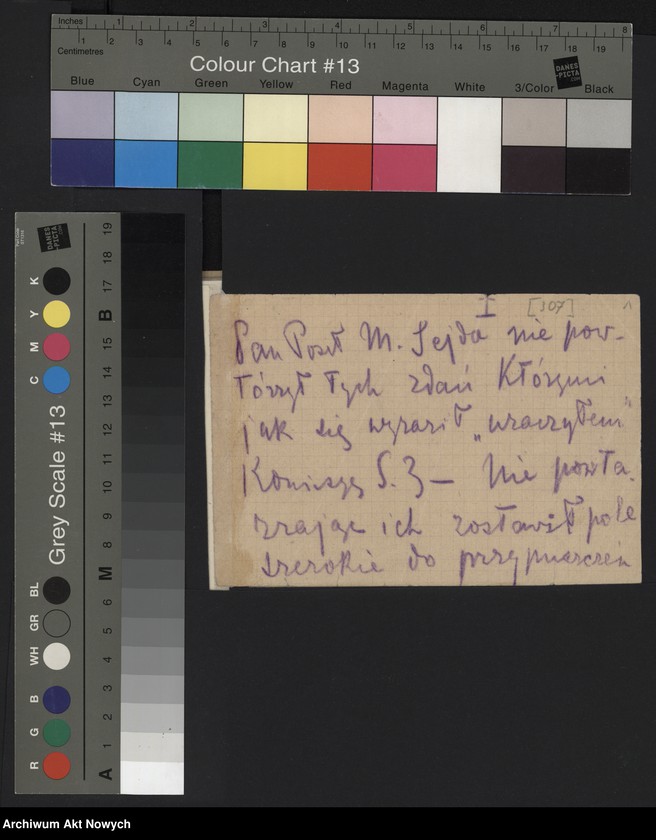 Inches 1 2 3 4 5 6 7 8
Centimetres 1 2 3 4 5 6 7 8 9 10 11 12 13 14 15 16 17 18 19
Colour Chart #13
DANES-PICTA.COM
Blue Cyan Green Yellow Red Magenta White 3/Color Black
Grey Scale #13
DANES-PICTA.COM
K Y M C BL GR WH B G R
19 18 17 B 15 14 13 12 11 10 9 8 M 6 5 4 3 2 1 A
I [307]
Pan Poseł M. Sejda nie pow-
tórzył tych zdań któremi
jak się wyraził „uraczyłem”
Komisję S. Z – Nie powta
rzając ich zostawił pole
szerokie do przypuszczeń
Archiwum Akt Nowych